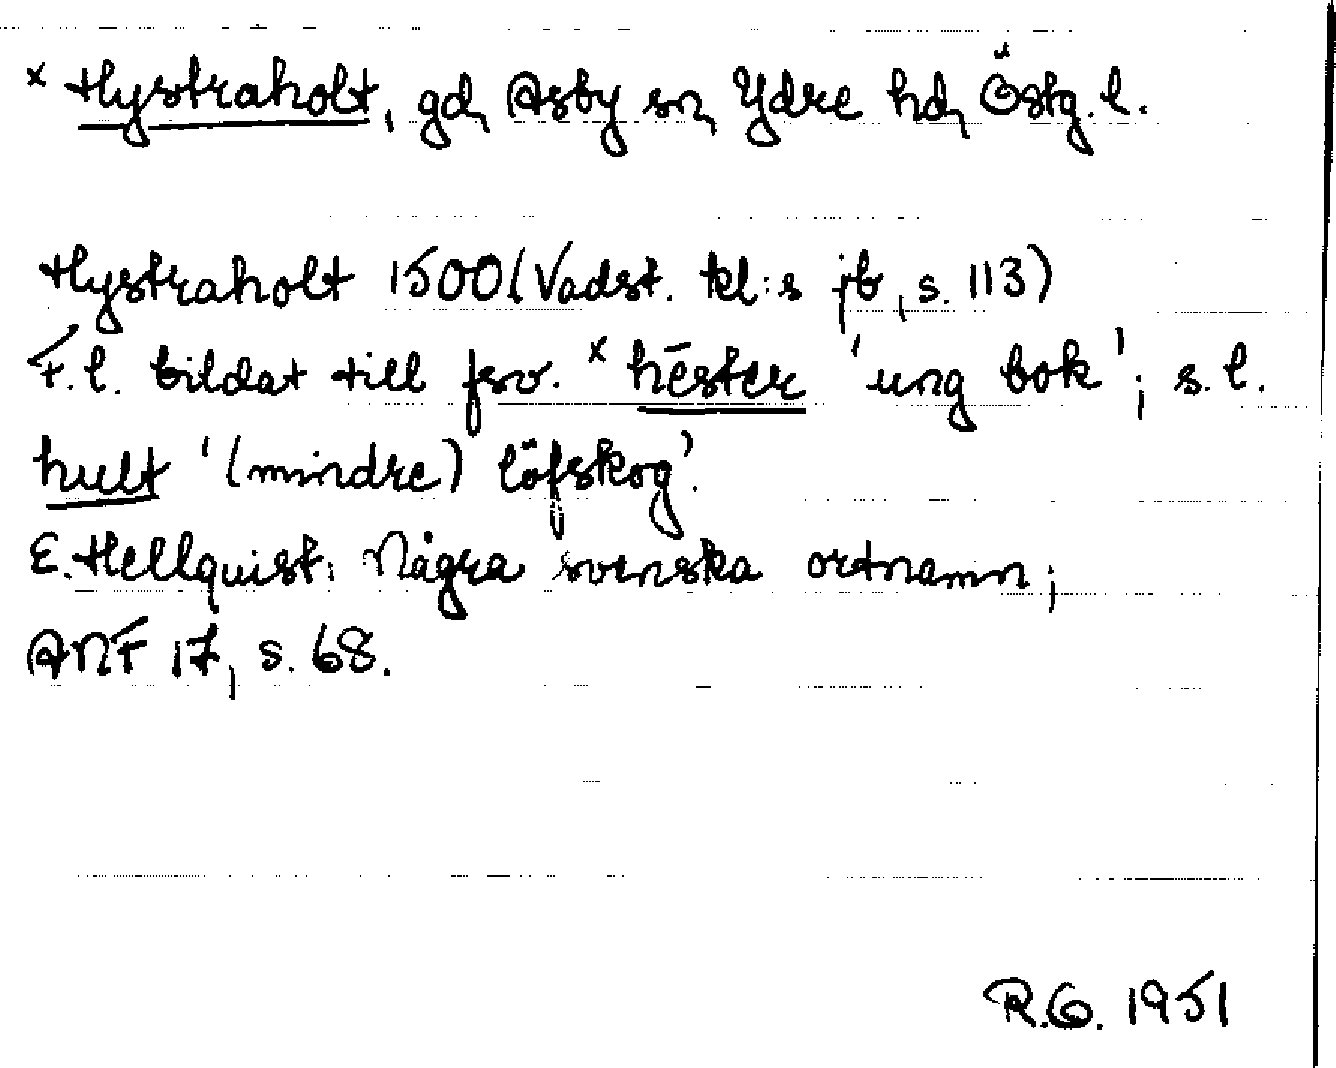 × Hystraholt, gd, Asby sn, Ydre hd, Östg. l.
Hystraholt 1500 (Vadst. kl:s jb, s. 113)
F.l. bildat till fsv. ×hēster 'ung bok'; s.l.
hult '(mindre) löfskog'.
E. Hellquist, Några svenska ortnamn;
ANF 17, s. 68.
R.G. 1951